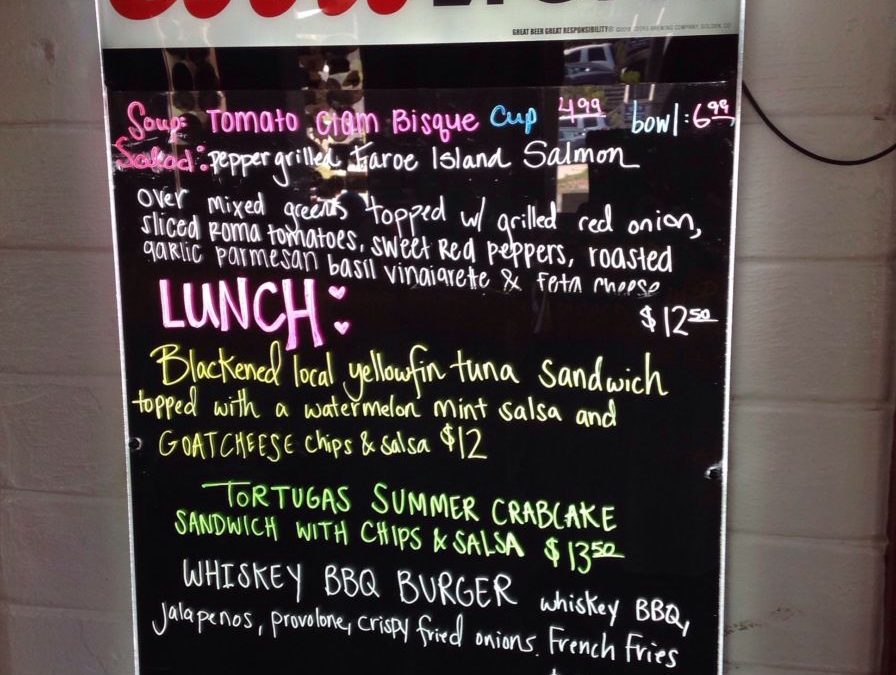 GREAT BEER GREAT RESPONSIBILITY®
Soup: Tomato Clam Bisque Cup 4.99 bowl: 6.99
Salad: pepper grilled Faroe Island Salmon
over mixed greens topped w/ grilled red onion,
sliced Roma tomatoes, sweet Red peppers, roasted
garlic parmesan basil vinaiarette & feta cheese
LUNCH: $12.50
Blackened local yellowfin tuna sandwich
topped with a watermelon mint salsa and
GOATCHEESE chips & salsa $12
TORTUGAS SUMMER CRABCAKE
SANDWICH WITH CHIPS & SALSA $13.50
WHISKEY BBQ BURGER whiskey BBQ,
jalapenos, provolone, crispy fried onions. French Fries